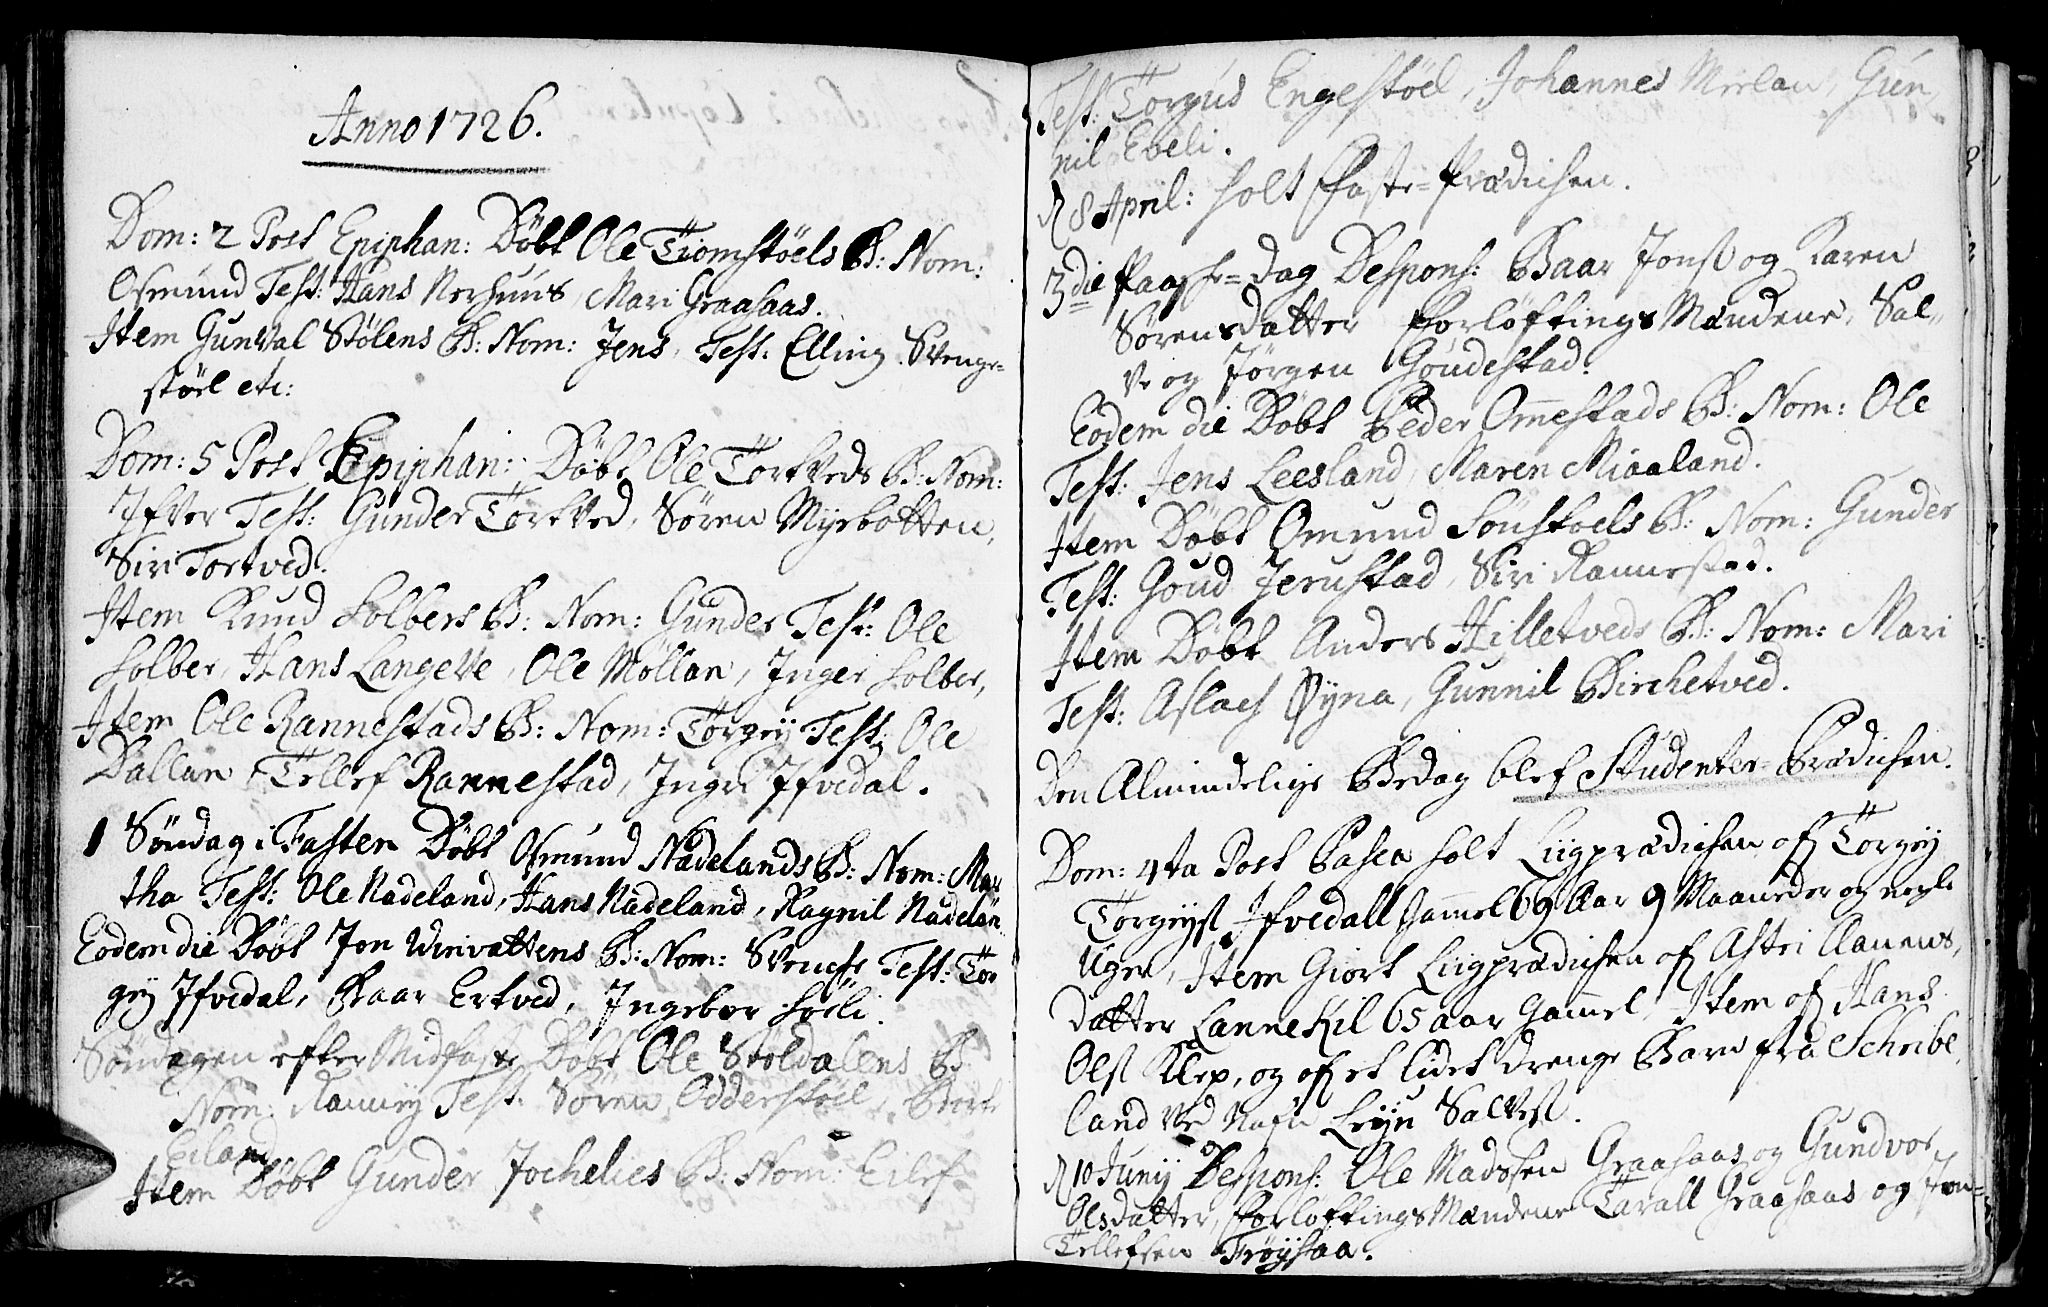 Anno 1726.
Dom: 2 Post Epiphan: Döbt Ole Tiomstöels B: Nom:
Osmund Test: Hans Nerhuus, Mari Graahaas.
Item GunVal Stölens B: Nom: Jens, Test: Elling Svenge-
stöel etc:
Dom: 5 Post Epiphan: Döbt Ole TortVeds B: Nom:
Ifver Test: Gunder TortVed, Søren Myrbotten,
Siri Tortved.
Item Knud Solbers B: Nom: Gunder Test: Ole
Solber, Hans LangeVe, Ole Möllan, Inger Solber,
Item Ole Rannestads B: Nom: Torgey Test: Ole
Dallan Tellef Rannestad, Inger Ifvedal.
1 Söndag i Fasten Döbt Osmund Nadelands B: Nom: Mar
tha Test: Ole Nadeland, Hans Nadeland, Ragnil Nadelan
Eodem die Döbt Jon Urivattens B: Nom: Svenche Test: Tor
gey Ifvedal, Baar Ertved, Ingebor
Söndagen efter Midfaste Döbt Ole Stoldalens B:
Nom: Ranney Test: Sören Odderstöel,
Eiland
Item Döbt Gunder Jochelies B: Nom: Eilef
Test: Torgus Engestöel, Johannes Mørlan, Gun
nil Eveli.
d 8 April: holt Faste-Prædichen.
3die Paasche-Dag Despons: Baar Jonss og Karen
Sørensdatter ForløftingsMændene, Sal-
Ve og Jörgen Goudestad.
Eodem die Döbt Peder Omestads B: Nom: Ole
Test: Jens Leesland, Maren Miaaland.
Item Döbt Omund B: Nom: Gunder
Test: Goud Jerustad, Siri Rannestad.
Item Döbt Anders Hilletveds B: Nom: Mari
Test: Aslach Øyna, Gunnil Birchetved.
Den Almindelige Bedag blef Studenter-Prædichen.
Dom: 4ta Post Pasca holt Liigprædichen of Torgey
Torgeyss Ifvedall gamel 69 Aar 9 Maaneder og nogle
Uger, Item Giort Liigprædichen of Astri Aanens
datter LanneKil 65 aar Gammel, Item of Hans
Olss Klep, og of et lidet drenge Barn fra Schibe
land Ved Nafn Salvess.
d 10 Junij Despons: Ole Madssen Graahaas og Gundvor
Olsdatter, ForløftingsMændene Tarall Graahaas og Jon
Tellefsen Trøysaa.